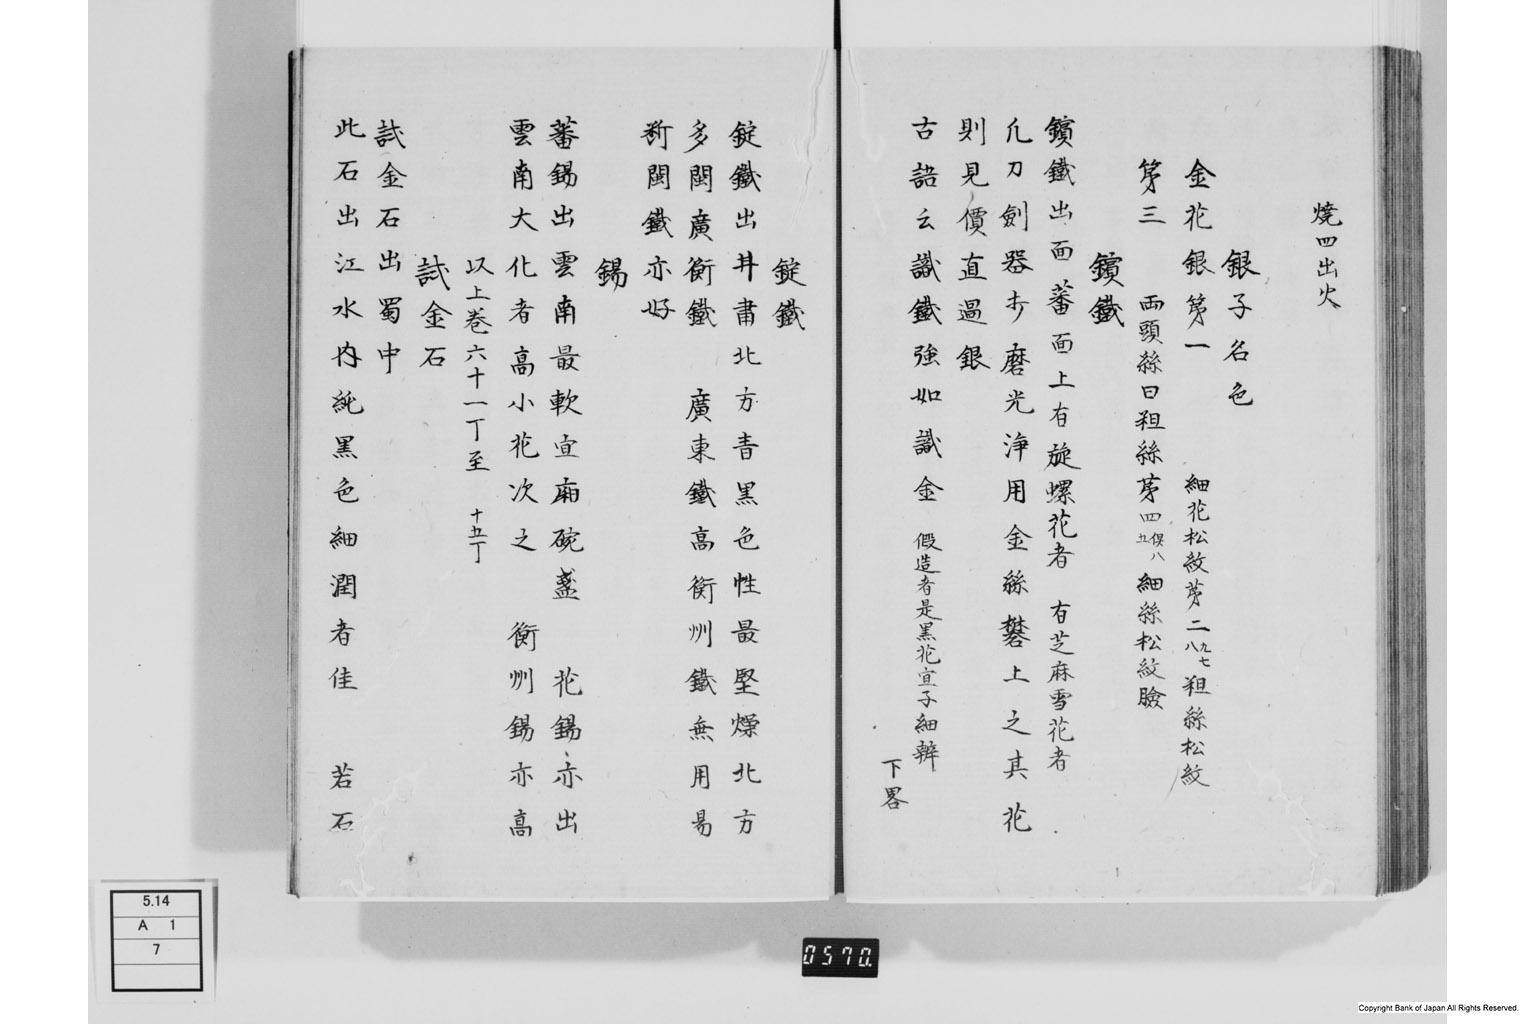 燒四出火
銀子名色
金花銀第一 細花松紋苐二 九七八 粗絲松紋
第三 両頭絲曰粗絲苐四 倶八五 細絲松紋臉
鑌鐵
鑌鐵出面蕃面上有旋螺花者 有芝麻雪花者
凢刀劍器打磨光浄用金絲礬上之其花
則見價直過銀
古語云識鐵強如識金 假造者是黒花宜子細辨
下畧
錠鐵
錠鐵出井肅北方青黒色性最堅燥北方
多閩廣衡鐵 廣東鐵高衡州鐵無用昜
斫閩鐵亦好
錫
蕃錫出雲南最軟宣廂碗盞 花錫亦出
雲南大化者高小花次之 衡州錫亦高
以上巻六十一丁至 十五丁
試金石
試金石出蜀中
此石出江水内純黒色細潤者佳 若石
5.14
A 1
7
0570.
Copyright Bank of Japan All Rights Reserved.